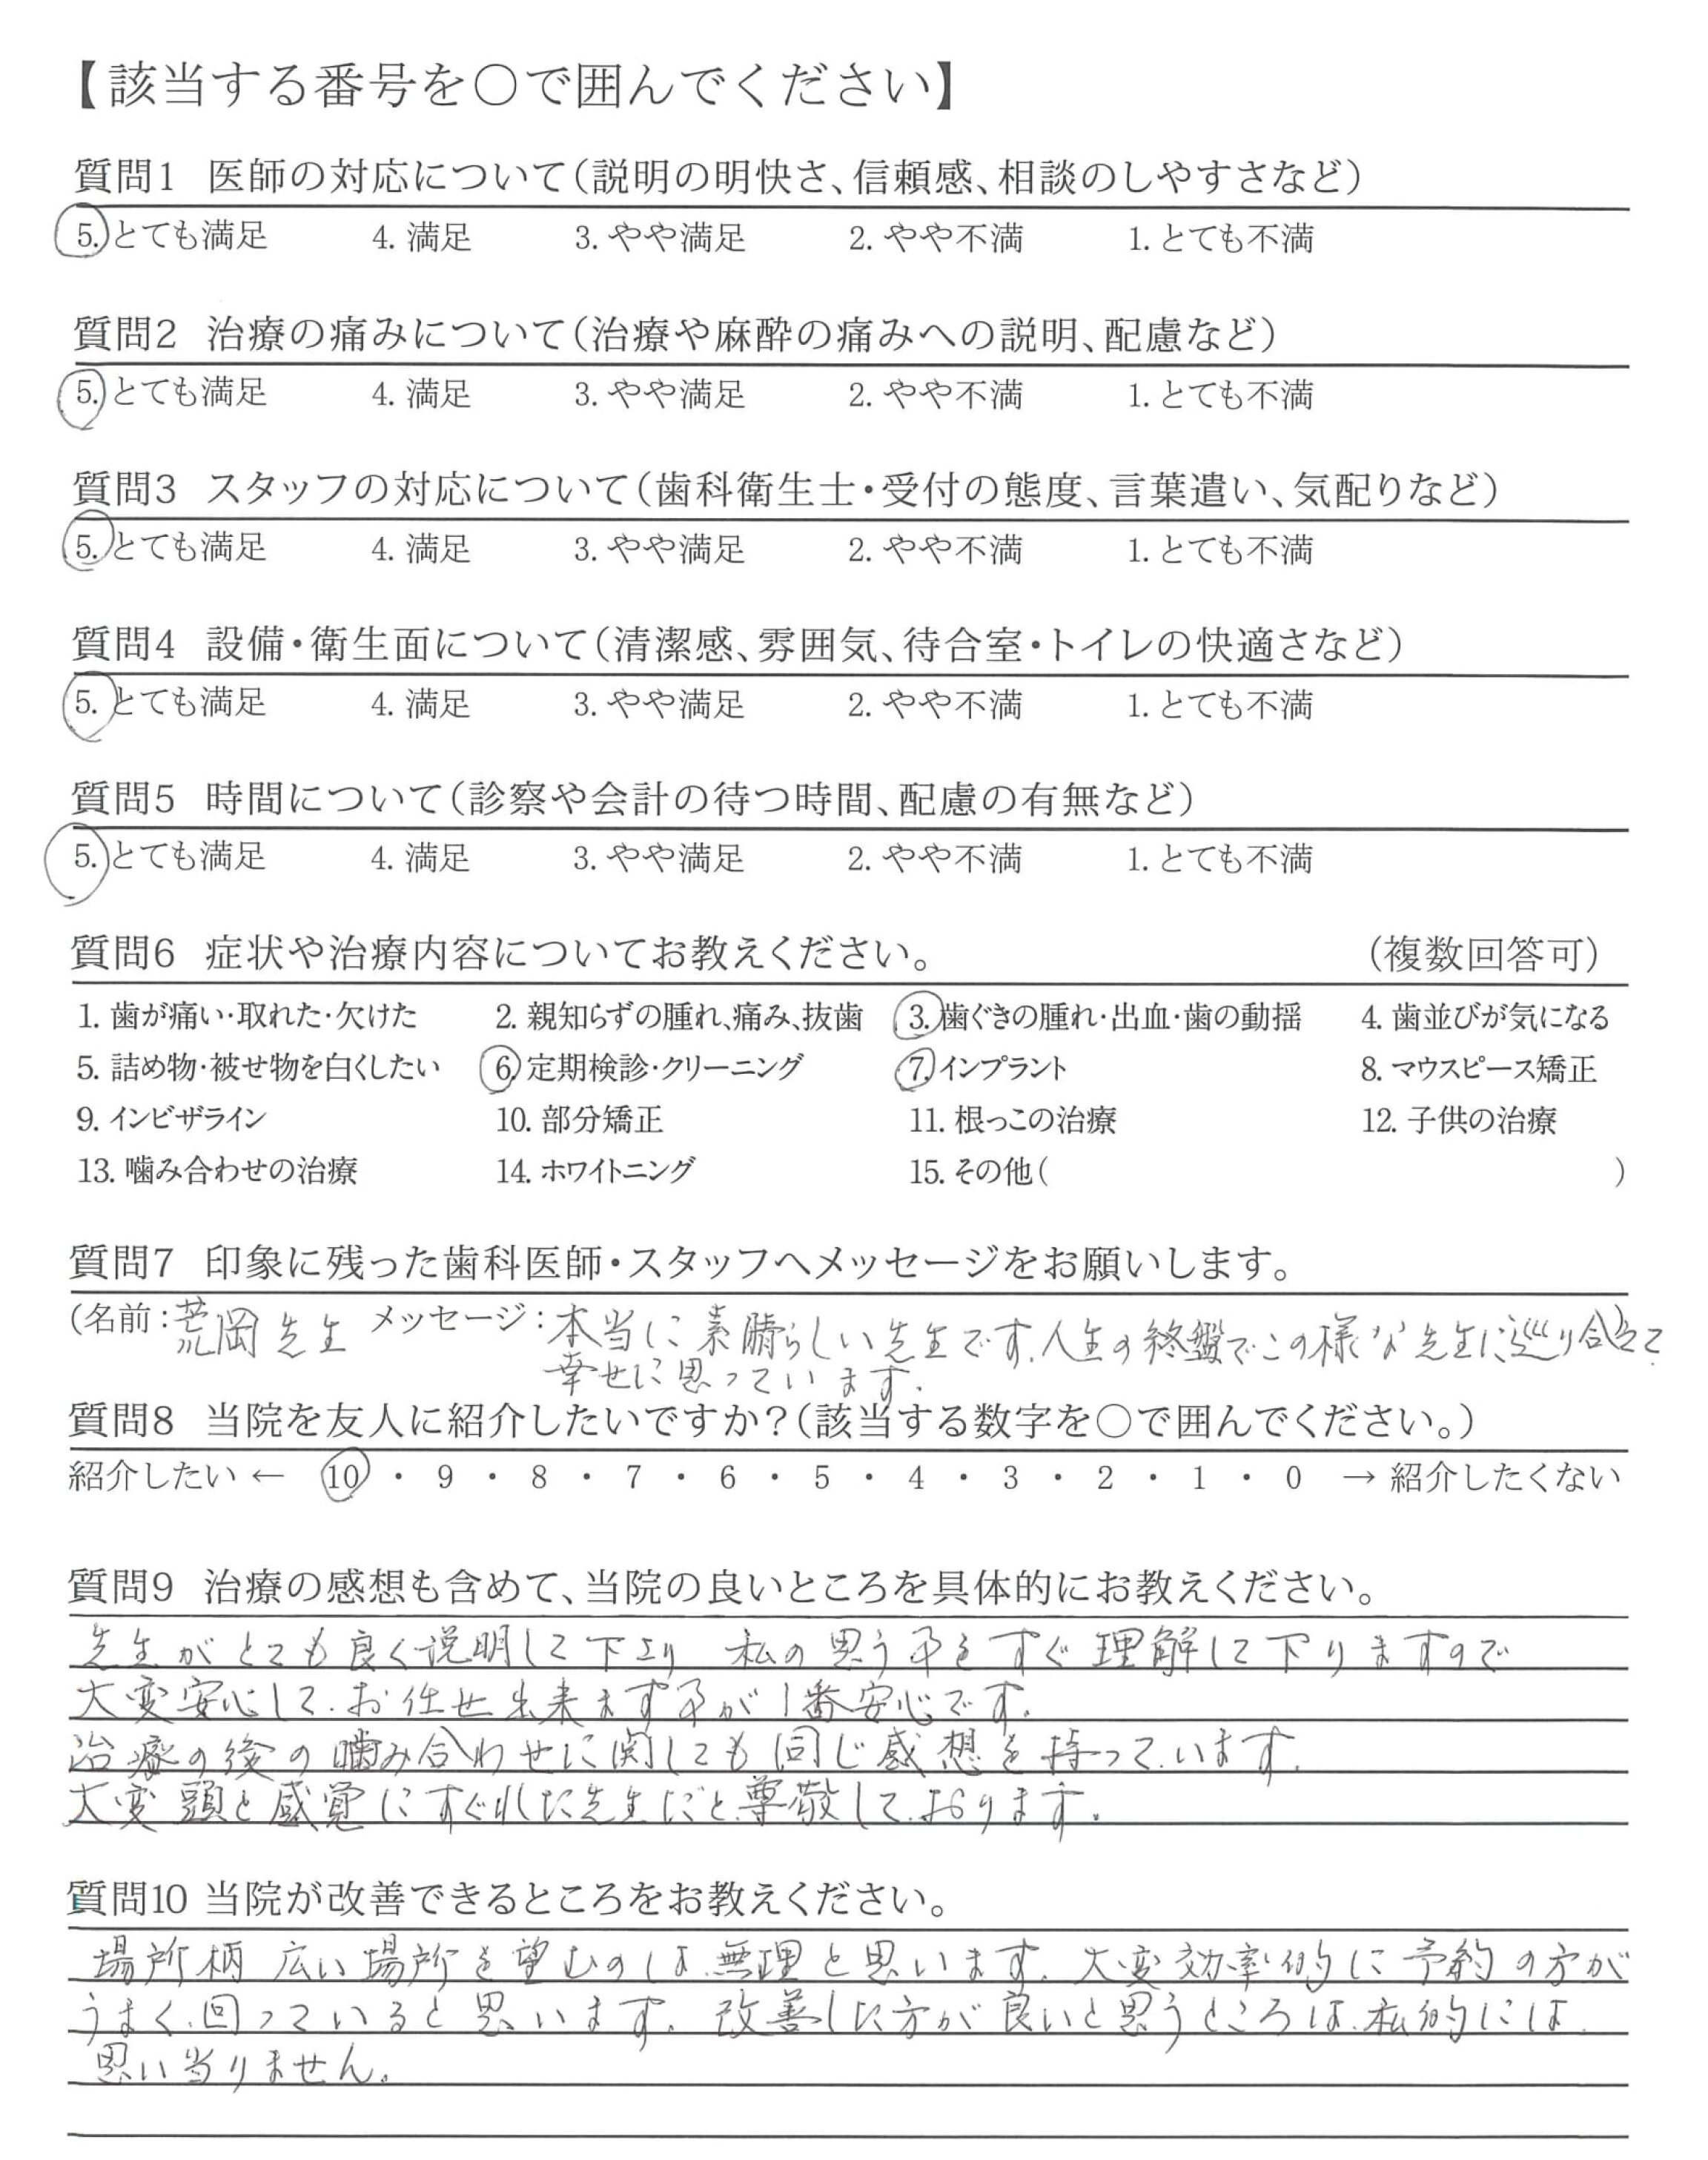 【該当する番号を○で囲んでください】
質問1 医師の対応について（説明の明快さ、信頼感、相談のしやすさなど）
5. とても満足 4. 満足 3. やや満足 2. やや不満 1. とても不満
質問2 治療の痛みについて（治療や麻酔の痛みへの説明、配慮など）
5. とても満足 4. 満足 3. やや満足 2. やや不満 1. とても不満
質問3 スタッフの対応について（歯科衛生士・受付の態度、言葉遣い、気配りなど）
5. とても満足 4. 満足 3. やや満足 2. やや不満 1. とても不満
質問4 設備・衛生面について（清潔感、雰囲気、待合室・トイレの快適さなど）
5. とても満足 4. 満足 3. やや満足 2. やや不満 1. とても不満
質問5 時間について（診察や会計の待つ時間、配慮の有無など）
5. とても満足 4. 満足 3. やや満足 2. やや不満 1. とても不満
質問6 症状や治療内容についてお教えください。 （複数回答可）
1. 歯が痛い・取れた・欠けた 2. 親知らずの腫れ、痛み、抜歯 3. 歯ぐきの腫れ・出血・歯の動揺 4. 歯並びが気になる
5. 詰め物・被せ物を白くしたい 6. 定期検診・クリーニング 7. インプラント 8. マウスピース矯正
9. インビザライン 10. 部分矯正 11. 根っこの治療 12. 子供の治療
13. 噛み合わせの治療 14. ホワイトニング 15. その他（ ）
質問7 印象に残った歯科医師・スタッフへメッセージをお願いします。
（名前：荒岡先生 メッセージ：本当に素晴らしい先生です。人生の終盤でこの様な先生に巡り合えて
幸せに思っています。
質問8 当院を友人に紹介したいですか？（該当する数字を○で囲んでください。）
紹介したい ← 10 ・ 9 ・ 8 ・ 7 ・ 6 ・ 5 ・ 4 ・ 3 ・ 2 ・ 1 ・ 0 → 紹介したくない
質問9 治療の感想も含めて、当院の良いところを具体的にお教えください。
先生がとても良く説明して下さり 私の思う事をすぐ理解して下りますので
大変安心して、お任せ出来ます事が1番安心です。
治療の後の噛み合わせに関しても同じ感想を持っています。
大変頭と感覚にすぐれた先生だと尊敬しております。
質問10 当院が改善できるところをお教えください。
場所柄 広い場所を望むのは無理と思います。大変効率的に予約の方が
うまく回っていると思います。改善した方が良いと思うところは、私的には
思い当りません。